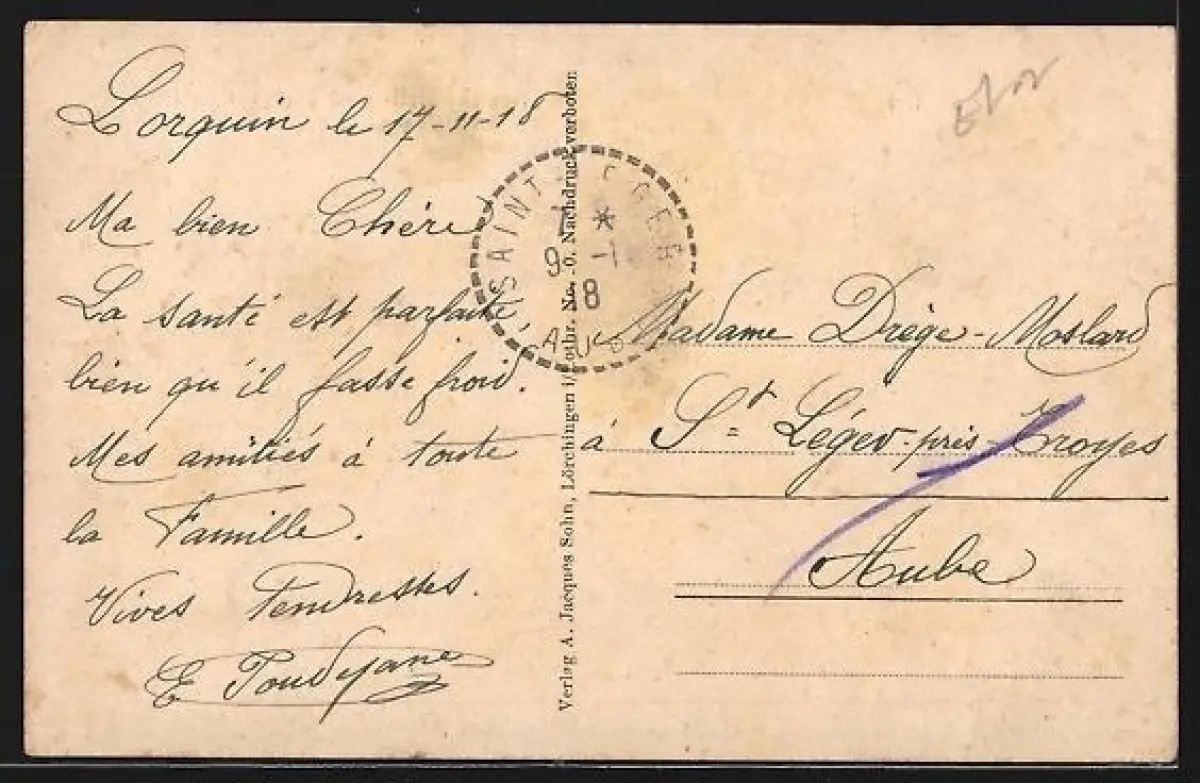 Lorquin le 17-11-18
Ma bien Chère
La santé est parfaite,
bien qu'il fasse froid.
Mes amitiés à toute
la Famille.
Vives Tendresses.
E
Verlag A. Jacques Sohn, Lörchingen i/Lothr. No. o. Nachdruck verboten
SAINT
7 *
9 -1
18
AUBE
Madame Drège-Moslard
à St Léger-près-Troyes
Aube